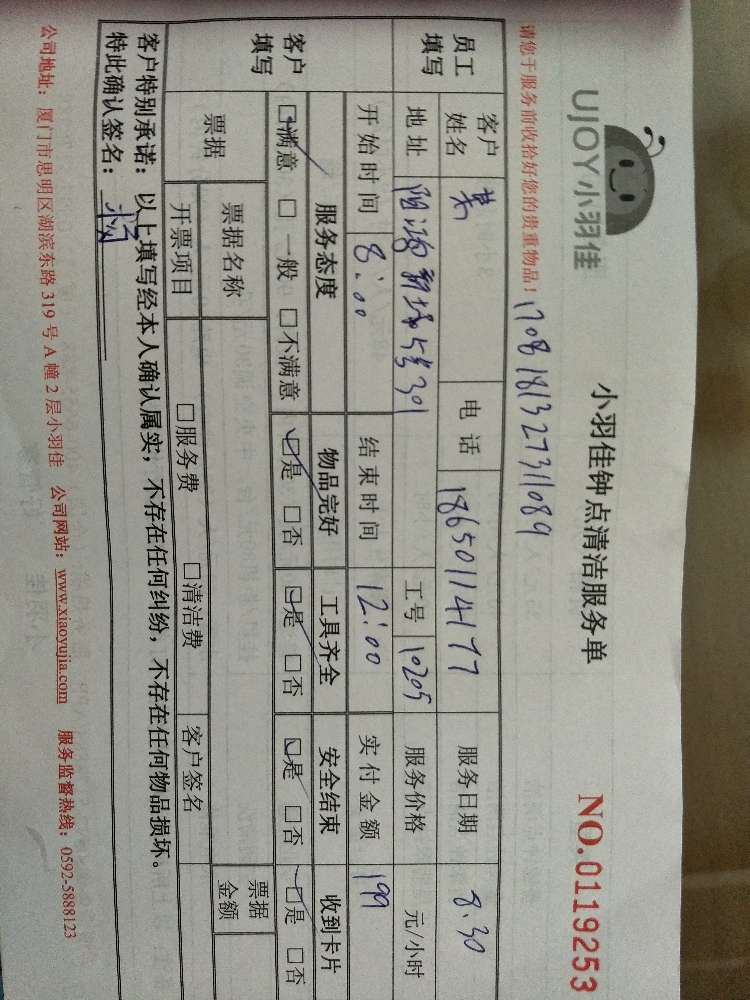 UJOY小羽佳
小羽佳钟点清洁服务单
NO.0119253
请您于服务前收拾好您的贵重物品!
1708181327311089
员工填写
客户姓名
电话 18650114177
服务日期 8.30
地址 5号301
工号 10205
服务价格 元/小时
开始时间 8:00
结束时间 12:00
实付金额 199
客户填写
服务态度 物品完好 工具齐全 安全结束 收到卡片
□满意 □一般 □不满意 □是 □否 □是 □否 □是 □否 □是 □否
票据
票据名称
票据金额
开票项目 □服务费 □清洁费 客户签名
客户特别承诺:以上填写经本人确认属实,不存在任何纠纷,不存在任何物品损坏。
特此确认签名:
公司地址:厦门市思明区湖滨东路319号A幢2层小羽佳 公司网站:www.xiaoyujia.com 服务监督热线:0592-5888123